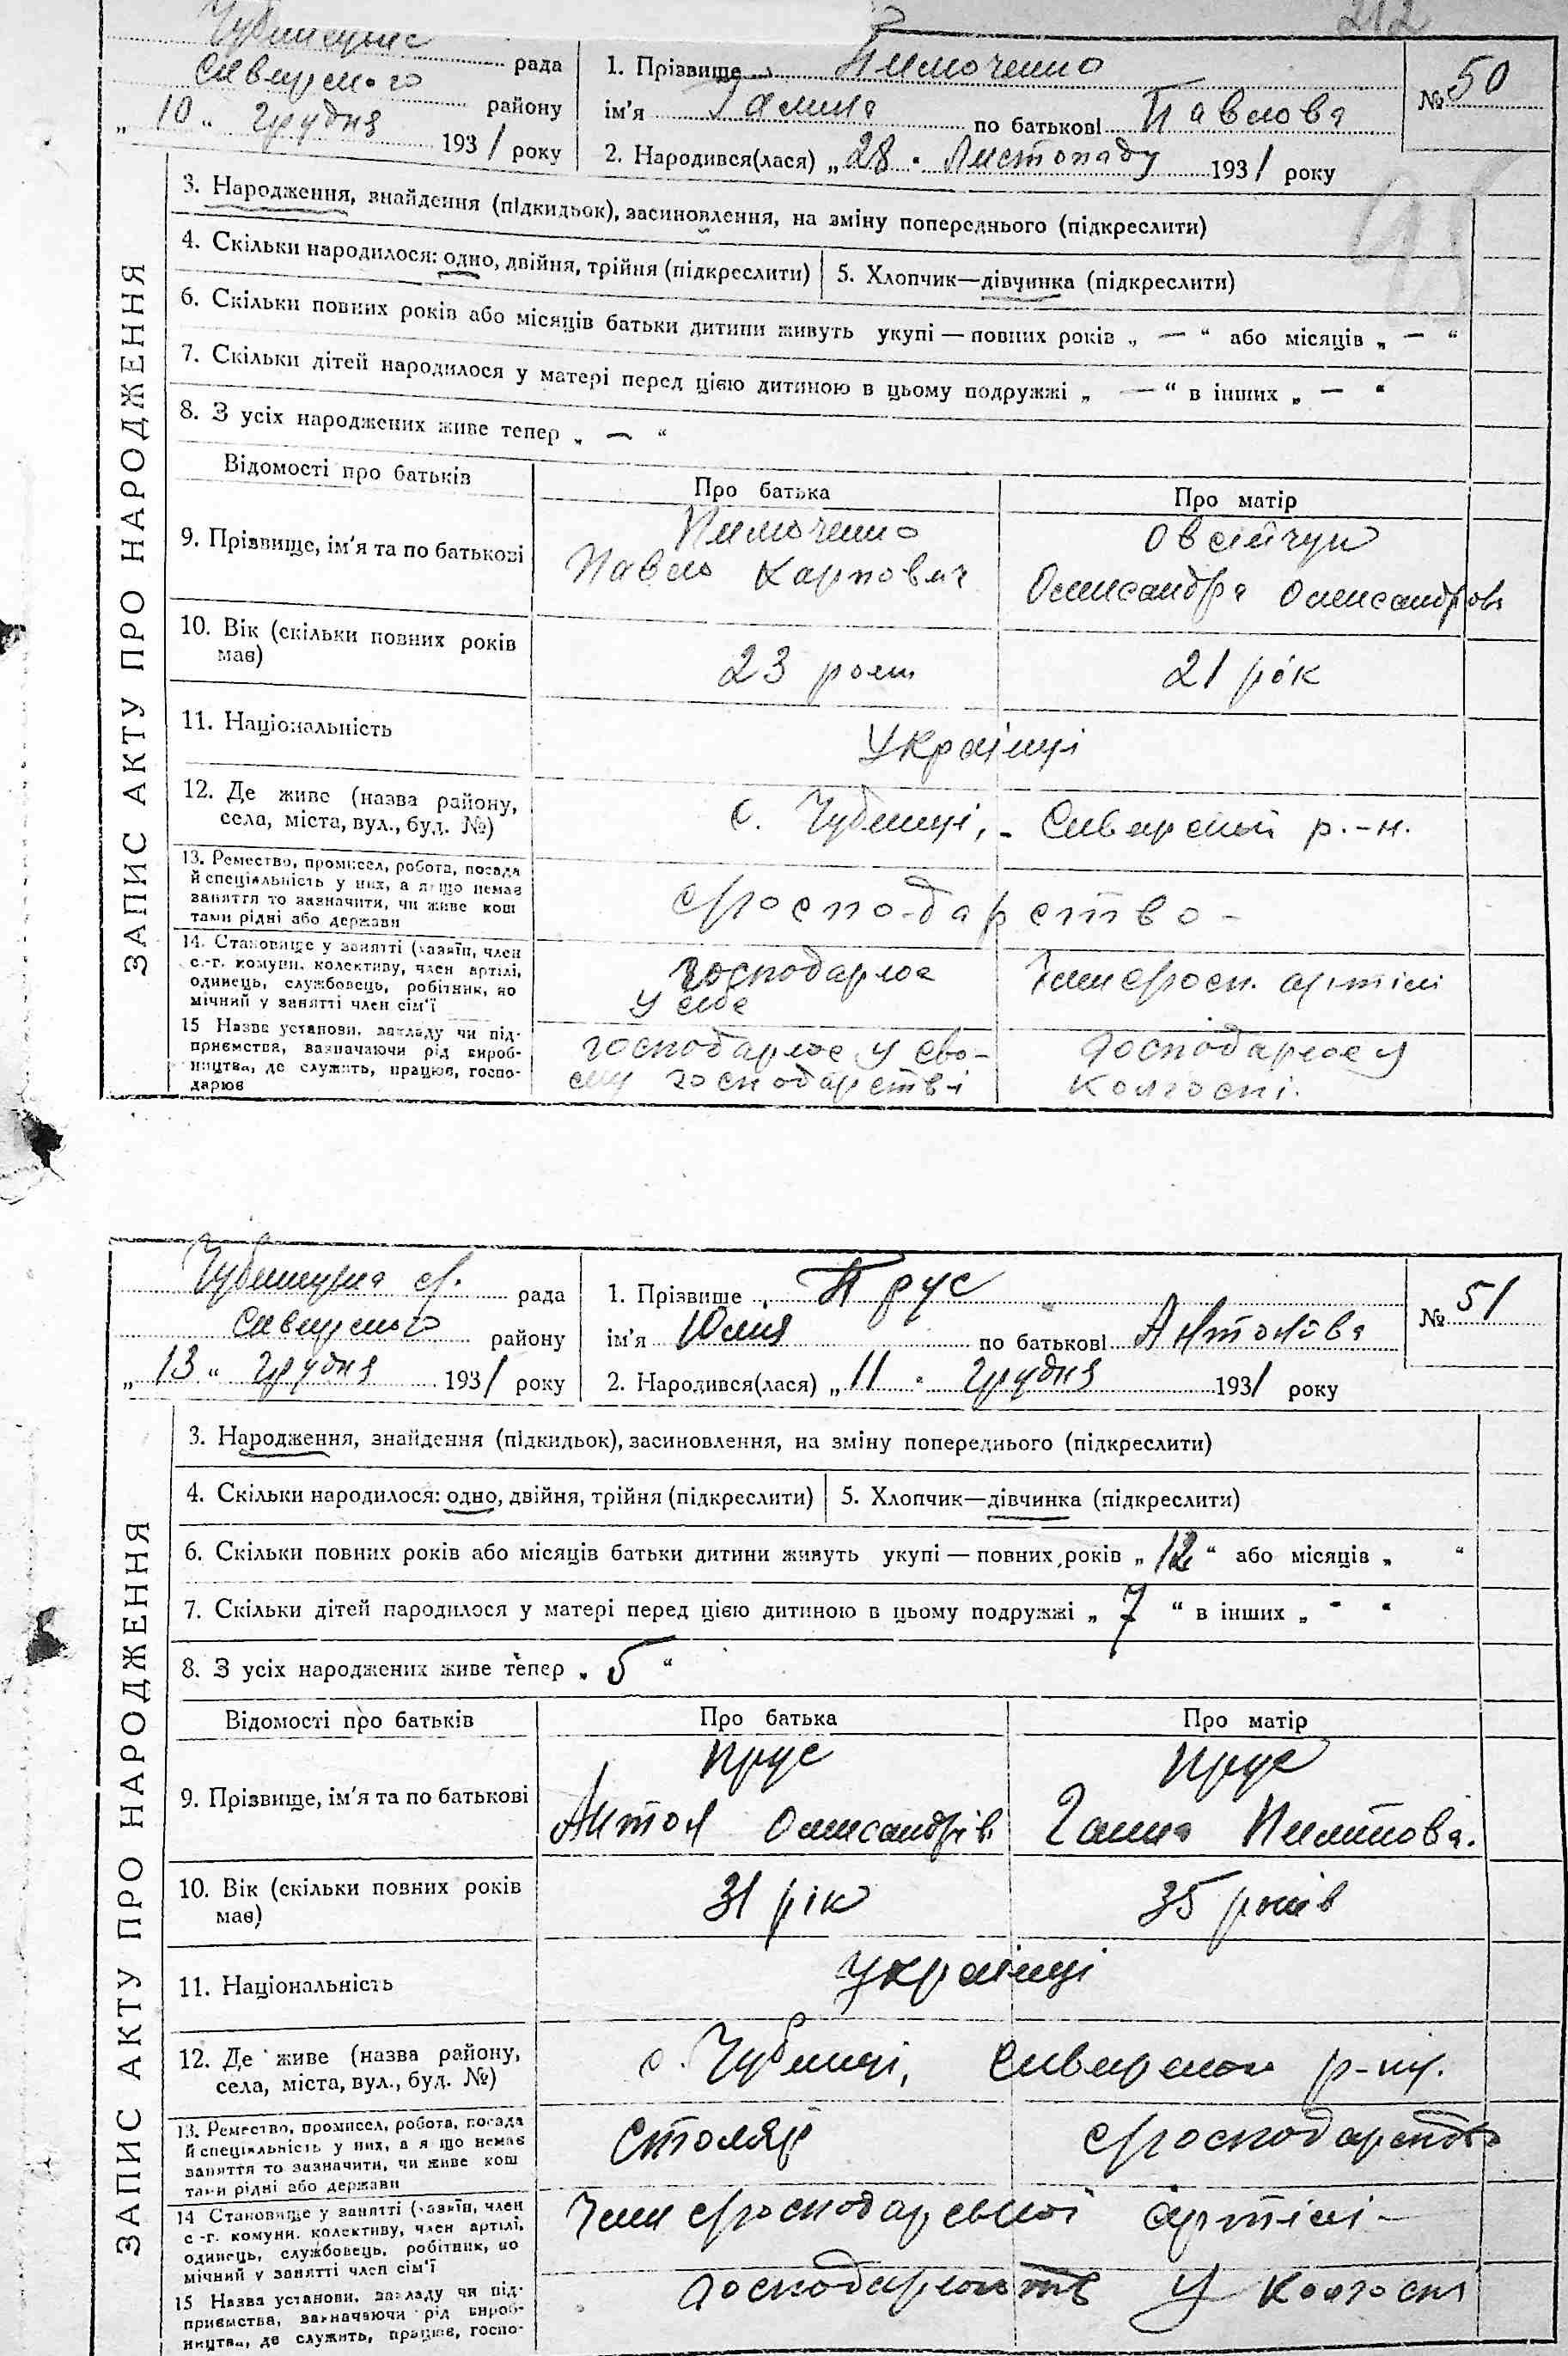 212
рада
района
„ 10 “ Грудня 1931 року
1. Прізвище Тимоченко
ім'я Галина по батькові Павлова
№ 50
2. Народився(лася) „ 28 “ Листопаду 1931 року
ЗАПИС АКТУ ПРО НАРОДЖЕННЯ
3. Народження, знайдення (підкидьок), засиновлення, на зміну попереднього (підкреслити)
4. Скільки народилося: одно, двійня, трійня (підкреслити) 5. Хлопчик—дівчинка (підкреслити)
6. Скільки повних років або місяців батьки дитини живуть укупі — повних років „ — “ або місяців „ — “
7. Скільки дітей народилося у матері перед цією дитиною в цьому подружжі „ — “ в інших „ — “
8. З усіх народжених живе тепер „ — “
Відомості про батьків Про батька Про матір
9. Прізвище, ім'я та по батькові
Овсійчук
Павло Карпович Олександра Олександров
10. Вік (скільки повних років має) 23 роки 21 рік
11. Національність Українці
12. Де живе (назва району, села, міста, вул., буд. №) с. Чубинці, Сквирский р.-н.
13. Ремество, промисел, робота, посада
й спеціяльність у них, а якщо немає
заняття то зазначити, чи живе кош
тами рідні або держави
сгосподарство -
14. Становище у занятті (хазяїн, член
с.-г. комуни, колективу, член артілі,
одинець, службовець, робітник, по
мічний у занятті член сім'ї
господарює у себе
Член сгосп. артілі
15 Назва установи, закладу чи під-
приємства, зазначаючи рід вироб-
ництва, де служить, працює, госпо-
дарює
господарює у сво-
єму господарстві
господарює у
колгоспі.
рада
Сквирського району
„ 13 “ Грудня 1931 року
1. Прізвище Прус
ім'я Юлія по батькові Антонова
№ 51
2. Народився(лася) „ 11 “ Грудня 1931 року
ЗАПИС АКТУ ПРО НАРОДЖЕННЯ
3. Народження, знайдення (підкидьок), засиновлення, на зміну попереднього (підкреслити)
4. Скільки народилося: одно, двійня, трійня (підкреслити) 5. Хлопчик—дівчинка (підкреслити)
6. Скільки повних років або місяців батьки дитини живуть укупі — повних років „ 12 “ або місяців „ “
7. Скільки дітей народилося у матері перед цією дитиною в цьому подружжі „ 7 “ в інших „ - “
8. З усіх народжених живе тепер „ 5 “
Відомості про батьків Про батька Про матір
9. Прізвище, ім'я та по батькові
Прус Прус
Антон Олександрів Ганна Пилипова.
10. Вік (скільки повних років має) 31 рік 35 років
11. Національність Українці
12. Де живе (назва району, села, міста, вул., буд. №) с. Чубинці, Сквирского р-ну.
13. Ремество, промисел, робота, посада
й спеціяльність у них, а якщо немає
заняття то зазначити, чи живе кош
тами рідні або держави
Столяр сгосподарство
14 Становище у занятті (хазяїн, член
с-г. комуни, колективу, член артілі,
одинець, службовець, робітник, по
мічний у занятті член сім'ї
Член сгосподарської артілі -
15 Назва установи, закладу чи під-
приємства, зазначаючи рід вироб-
ництва, де служить, працює, госпо-
господарюють у колгоспі